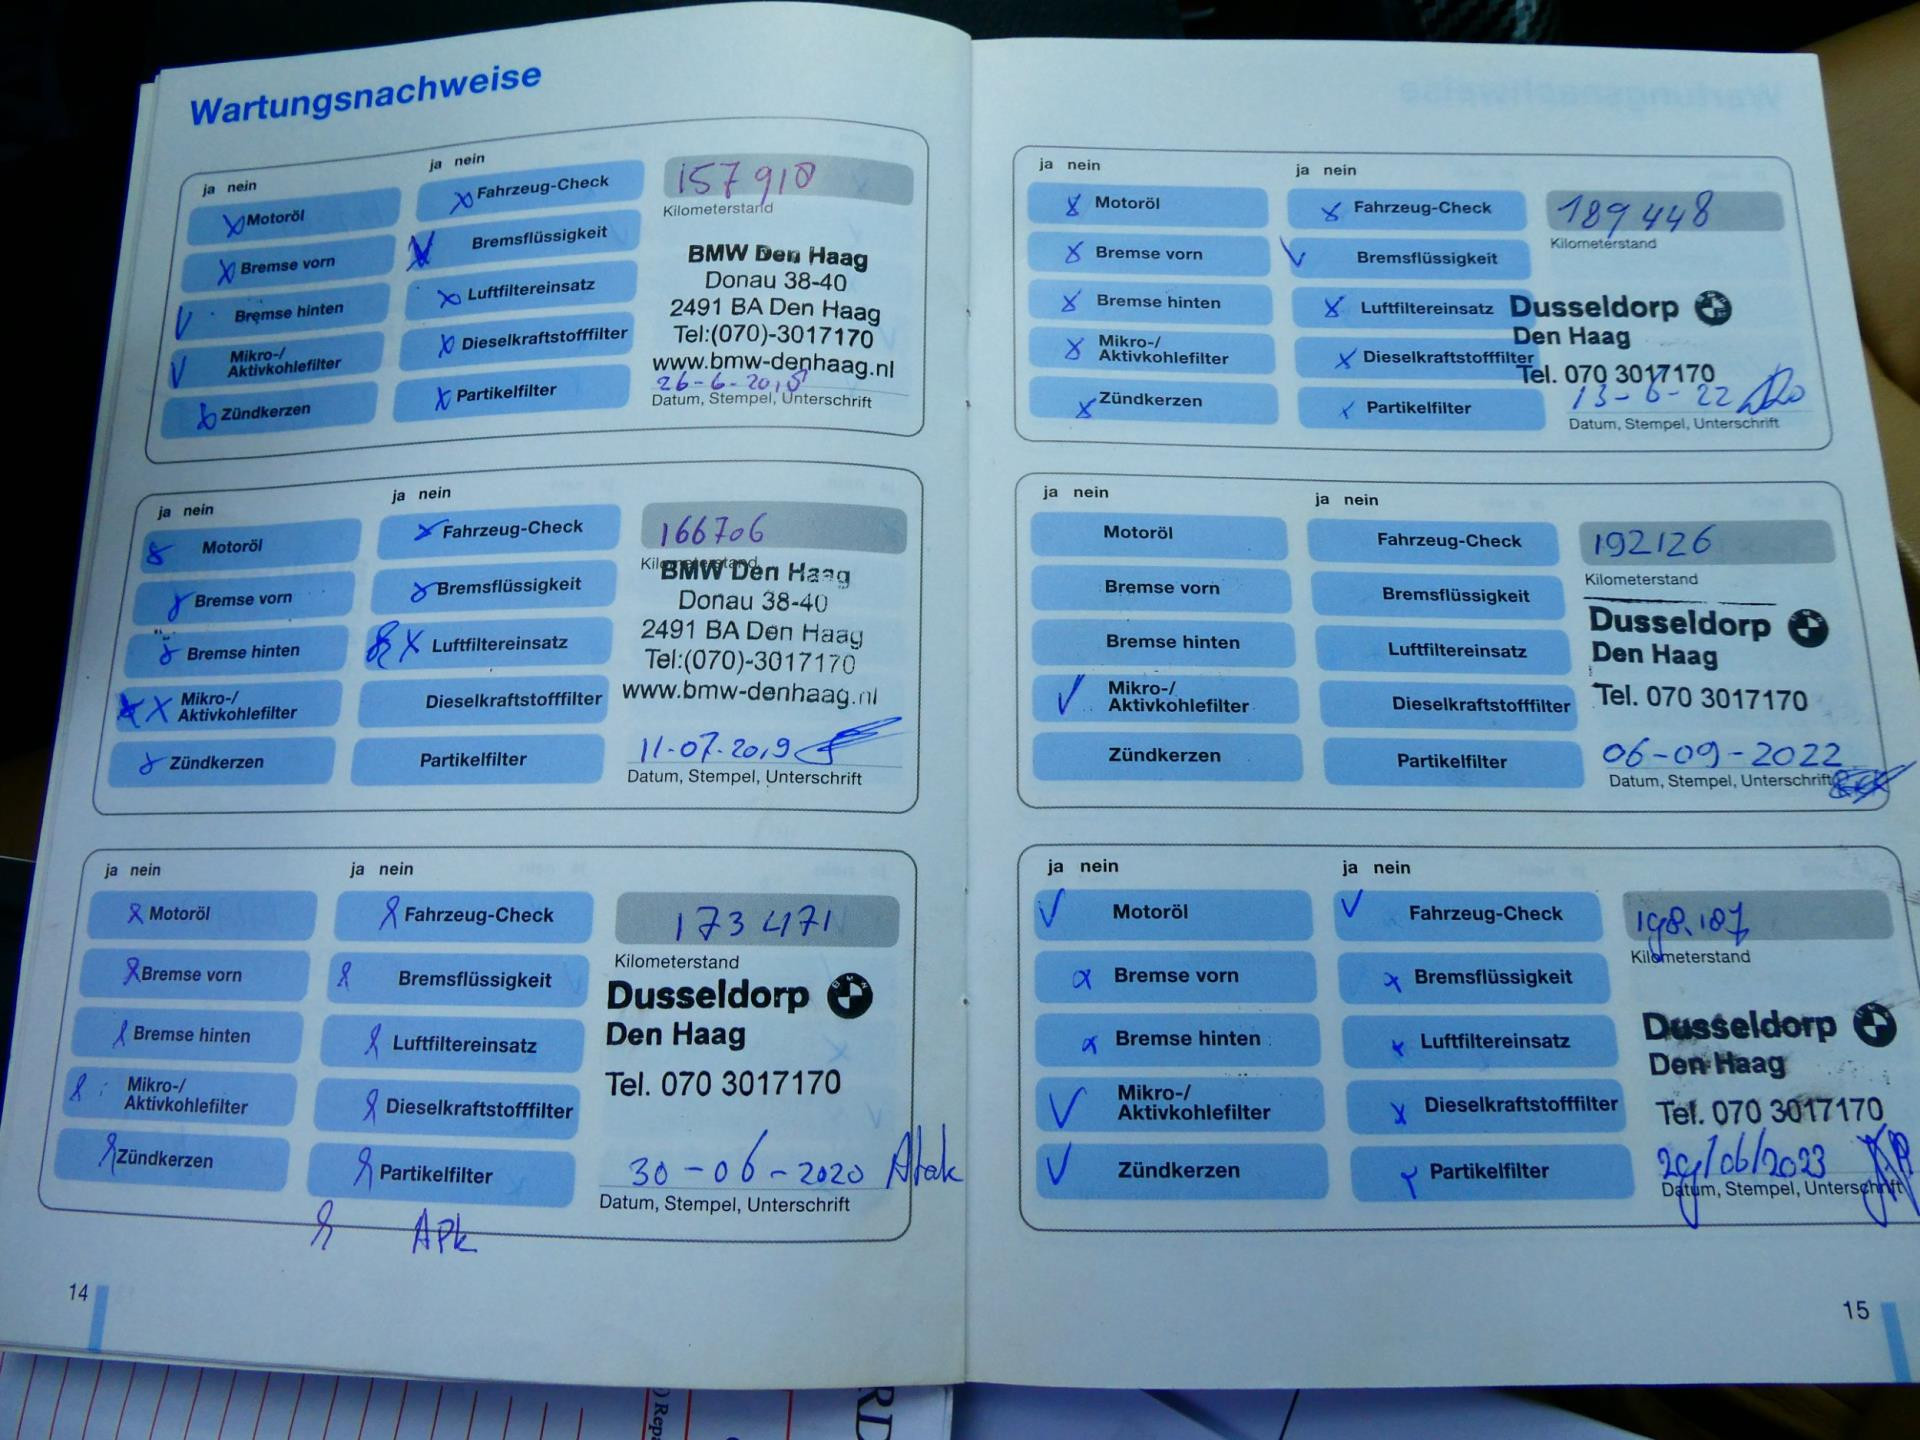 Wartungsnachweise
ja nein
Motoröl
Bremse vorn
Bremse hinten
Mikro-/
Aktivkohlefilter
Zündkerzen
ja nein
Fahrzeug-Check
Bremsflüssigkeit
Luftfiltereinsatz
Dieselkraftstofffilter
Partikelfilter
157910
Kilometerstand
BMW Den Haag
Donau 38-40
2491 BA Den Haag
Tel:(070)-3017170
www.bmw-denhaag.nl
Datum, Stempel, Unterschrift
ja nein
Motoröl
Bremse vorn
Bremse hinten
Mikro-/
Aktivkohlefilter
Zündkerzen
ja nein
Fahrzeug-Check
Bremsflüssigkeit
Luftfiltereinsatz
Dieselkraftstofffilter
Partikelfilter
166706
Kilometerstand
BMW Den Haag
Donau 38-40
2491 BA Den Haag
Tel:(070)-3017170
www.bmw-denhaag.nl
11-07-2019
Datum, Stempel, Unterschrift
ja nein
Motoröl
Bremse vorn
Bremse hinten
Mikro-/
Aktivkohlefilter
Zündkerzen
ja nein
Fahrzeug-Check
Bremsflüssigkeit
Luftfiltereinsatz
Dieselkraftstofffilter
Partikelfilter
APk
173471
Kilometerstand
Dusseldorp
Den Haag
Tel. 070 3017170
30-06-2020
Datum, Stempel, Unterschrift
14
ja nein
Motoröl
Bremse vorn
Bremse hinten
Mikro-/
Aktivkohlefilter
Zündkerzen
ja nein
Fahrzeug-Check
Bremsflüssigkeit
Luftfiltereinsatz
Dieselkraftstofffilter
Partikelfilter
189448
Kilometerstand
Dusseldorp
Den Haag
Tel. 070 3017170
13-6-22
Datum, Stempel, Unterschrift
ja nein
Motoröl
Bremse vorn
Bremse hinten
Mikro-/
Aktivkohlefilter
Zündkerzen
ja nein
Fahrzeug-Check
Bremsflüssigkeit
Luftfiltereinsatz
Dieselkraftstofffilter
Partikelfilter
192126
Kilometerstand
Dusseldorp
Den Haag
Tel. 070 3017170
06-09-2022
Datum, Stempel, Unterschrift
ja nein
Motoröl
Bremse vorn
Bremse hinten
Mikro-/
Aktivkohlefilter
Zündkerzen
ja nein
Fahrzeug-Check
Bremsflüssigkeit
Luftfiltereinsatz
Dieselkraftstofffilter
Partikelfilter
198.187
Kilometerstand
Dusseldorp
Den Haag
Tel. 070 3017170
29/06/2023
Datum, Stempel, Unterschrift
15